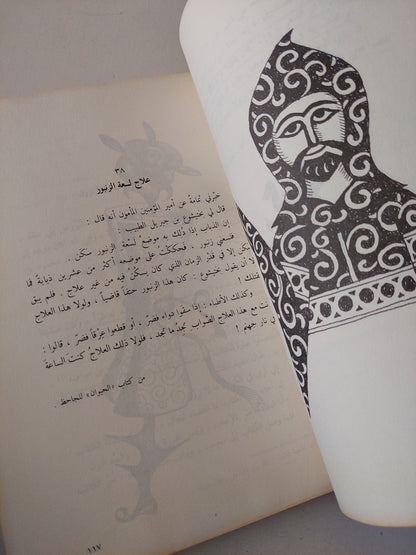 ٣٨
علاج لسعة الزنبور
خبّرني ثمامة عن أمير المؤمنين المأمون أنه قال :
قال لي بختيشوع بن جبريل الطبيب :
إن الذباب إذا دُلك به موضعُ لسعة الزنبور سكن .
فلسعني زنبور . فحككت على موضعه أكثر من عشرين ذبابة فما
سكن إلا في قدر الزمان الذي كان يسكن فيه من غير علاج . فلم يبق
إلا أن يقول بختيشوع : كان هذا الزنبور حتفاً قاضياً ، ولولا هذا العلاج
لقتلك !
وكذلك الأطباء : إذا سقوا دواء فضرّ ، أو قطعوا عِرْقاً فضرّ ، قالوا :
مع هذا العلاج الصواب تجدُ ما تجد . فلولا ذلك العلاجُ كنتَ الساعة
نار جهنم !
من كتاب «الحيوان» للجاحظ .
١١٧